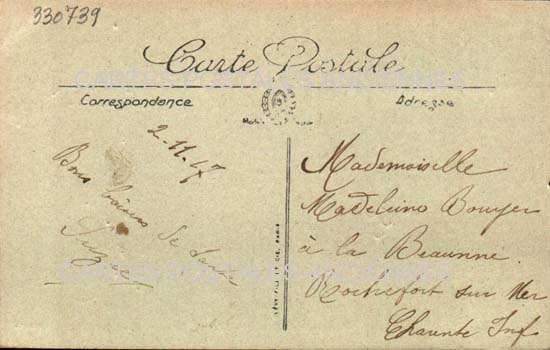 330739
Carte Postale
CARTES POSTALES ANCIENNES
Correspondance
Adresse
2-11-47
Bons baisers de
Mademoiselle
Madeleine Bouyer
à la Beaunne
Rochefort sur Mer
Charente Inf
LÉVY FILS ET CIE, PARIS
CARTES POSTALES ANCIENNES